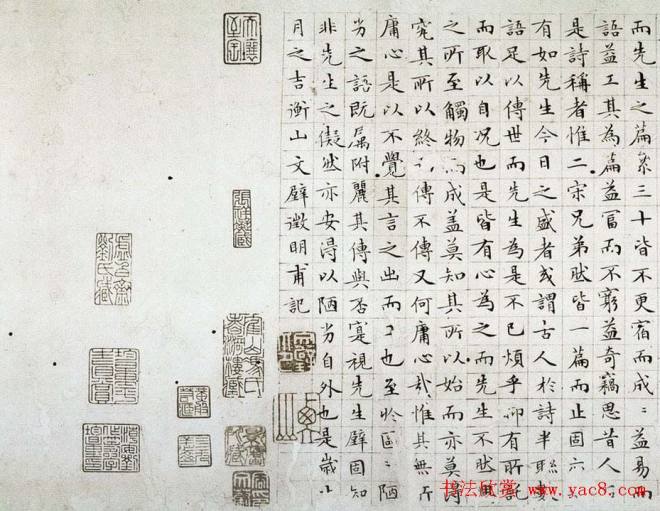 而先生之篇累三十皆不更宿而成〻益易而
語益工其為篇益富而不窮益奇竊思昔人
是詩稱者惟二宋兄弟然皆一篇而止固
有如先生今日之盛者或謂古人於詩半聯數
語足以傳世而先生為是不已煩乎抑有所託
而取以自况也是皆有心為之而先生不然興
之所至觸物而成蓋莫知其所以始而亦莫得
究其所以終傳不傳又何庸心哉惟其無所
庸心是以不覺其言之出而工也至於區〻陋
劣之語既屬附麗其傳與否寔視先生壁固知
非先生之儗然亦安得以陋劣自外也是歲十
月之吉衡山文壁徵明甫記
书法欣赏 www.yac8.com